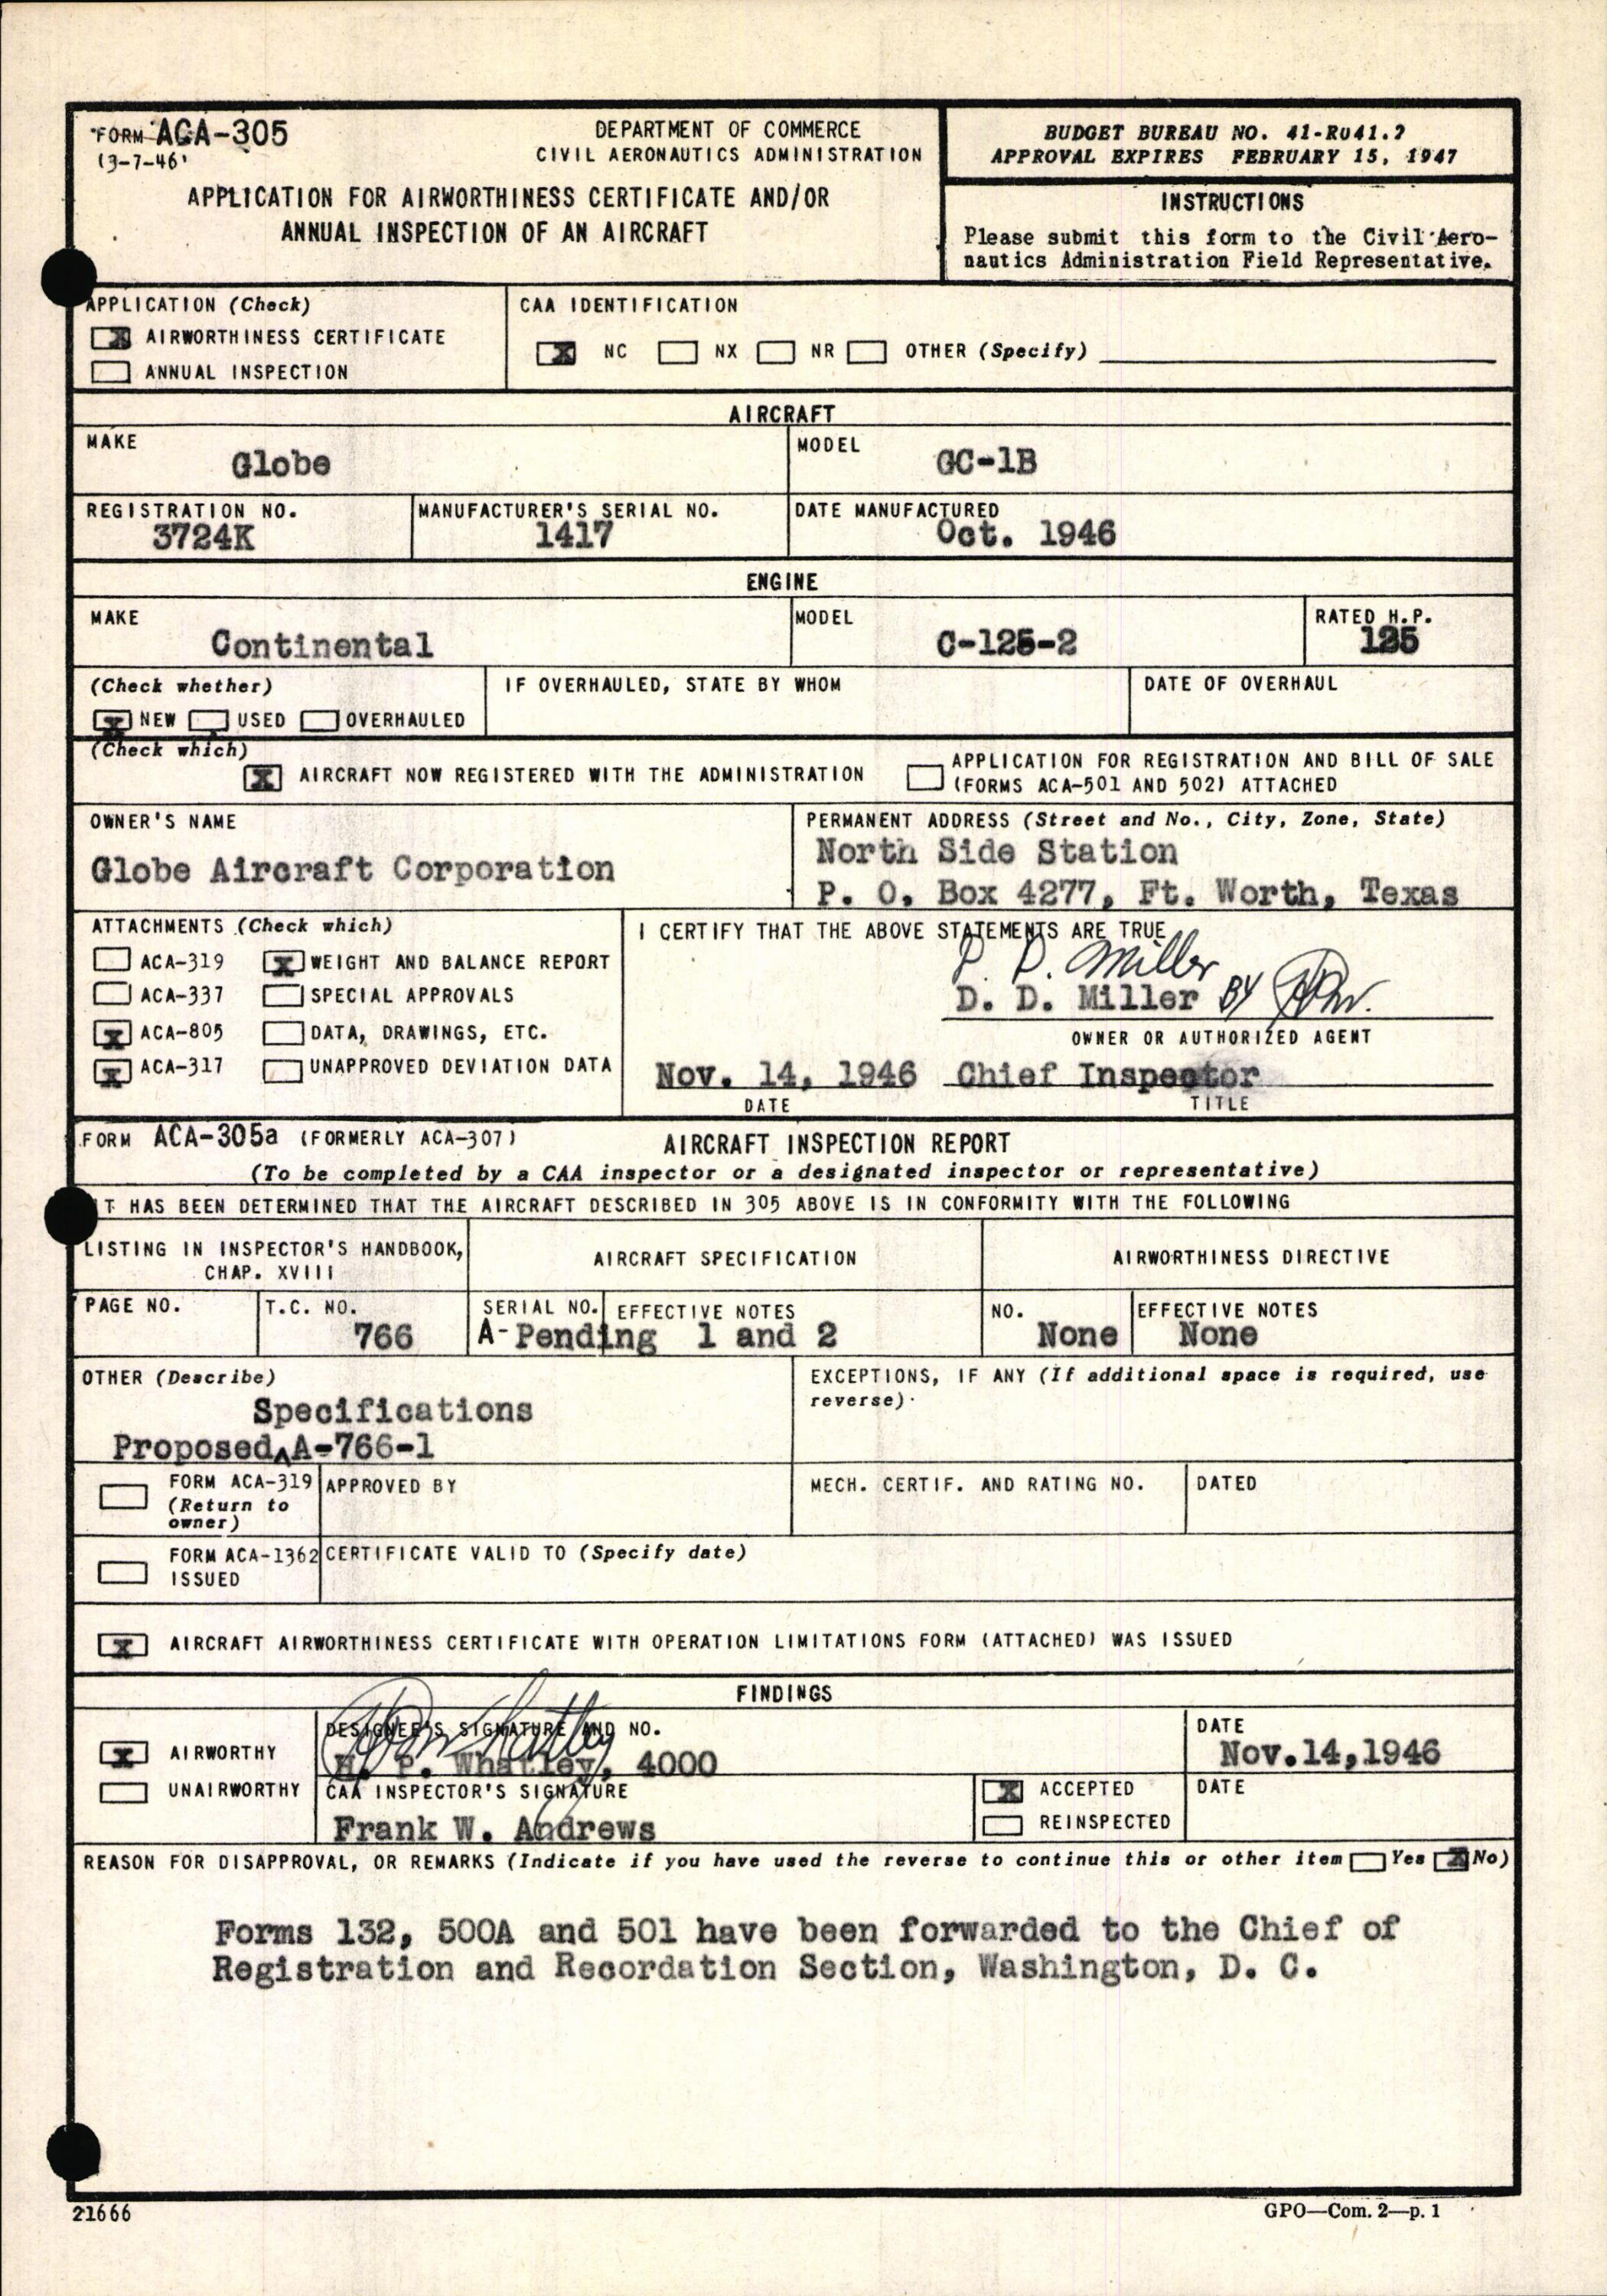 FORM ACA-305
(3-7-46)
DEPARTMENT OF COMMERCE
CIVIL AERONAUTICS ADMINISTRATION
APPLICATION FOR AIRWORTHINESS CERTIFICATE AND/OR
ANNUAL INSPECTION OF AN AIRCRAFT
BUDGET BUREAU NO. 41-R041.?
APPROVAL EXPIRES FEBRUARY 15, 1947
INSTRUCTIONS
Please submit this form to the Civil Aero-
nautics Administration Field Representative.
APPLICATION (Check)
X AIRWORTHINESS CERTIFICATE
ANNUAL INSPECTION
CAA IDENTIFICATION
X NC NX NR OTHER (Specify)
AIRCRAFT
MAKE
Globe
MODEL
GC-1B
REGISTRATION NO.
3724K
MANUFACTURER'S SERIAL NO.
1417
DATE MANUFACTURED
Oct. 1946
ENGINE
MAKE
Continental
MODEL
C-125-2
RATED H.P.
125
(Check whether)
X NEW USED OVERHAULED
IF OVERHAULED, STATE BY WHOM
DATE OF OVERHAUL
(Check which)
X AIRCRAFT NOW REGISTERED WITH THE ADMINISTRATION
APPLICATION FOR REGISTRATION AND BILL OF SALE
(FORMS ACA-501 AND 502) ATTACHED
OWNER'S NAME
Globe Aircraft Corporation
PERMANENT ADDRESS (Street and No., City, Zone, State)
North Side Station
P. O. Box 4277, Ft. Worth, Texas
ATTACHMENTS (Check which)
ACA-319 X WEIGHT AND BALANCE REPORT
ACA-337 SPECIAL APPROVALS
X ACA-805 DATA, DRAWINGS, ETC.
X ACA-317 UNAPPROVED DEVIATION DATA
I CERTIFY THAT THE ABOVE STATEMENTS ARE TRUE
D. D. Miller
D. D. Miller BY
OWNER OR AUTHORIZED AGENT
Nov. 14, 1946 Chief Inspector
DATE TITLE
FORM ACA-305a (FORMERLY ACA-307)
AIRCRAFT INSPECTION REPORT
(To be completed by a CAA inspector or a designated inspector or representative)
IT HAS BEEN DETERMINED THAT THE AIRCRAFT DESCRIBED IN 305 ABOVE IS IN CONFORMITY WITH THE FOLLOWING
LISTING IN INSPECTOR'S HANDBOOK,
CHAP. XVIII
AIRCRAFT SPECIFICATION
AIRWORTHINESS DIRECTIVE
PAGE NO.
T.C. NO.
766
SERIAL NO. EFFECTIVE NOTES
A-Pending 1 and 2
NO.
None
EFFECTIVE NOTES
None
OTHER (Describe)
Specifications
Proposed^A-766-1
EXCEPTIONS, IF ANY (If additional space is required, use
reverse).
FORM ACA-319
(Return to
owner)
APPROVED BY
MECH. CERTIF. AND RATING NO.
DATED
FORM ACA-1362
ISSUED
CERTIFICATE VALID TO (Specify date)
X AIRCRAFT AIRWORTHINESS CERTIFICATE WITH OPERATION LIMITATIONS FORM (ATTACHED) WAS ISSUED
FINDINGS
X AIRWORTHY
UNAIRWORTHY
DESIGNEE'S SIGNATURE AND NO.
H. P. Whatley, 4000
DATE
Nov.14,1946
CAA INSPECTOR'S SIGNATURE
Frank W. Andrews
X ACCEPTED
REINSPECTED
DATE
REASON FOR DISAPPROVAL, OR REMARKS (Indicate if you have used the reverse to continue this or other item Yes X No)
Forms 132, 500A and 501 have been forwarded to the Chief of
Registration and Recordation Section, Washington, D. C.
21666
GPO—Com. 2—p. 1